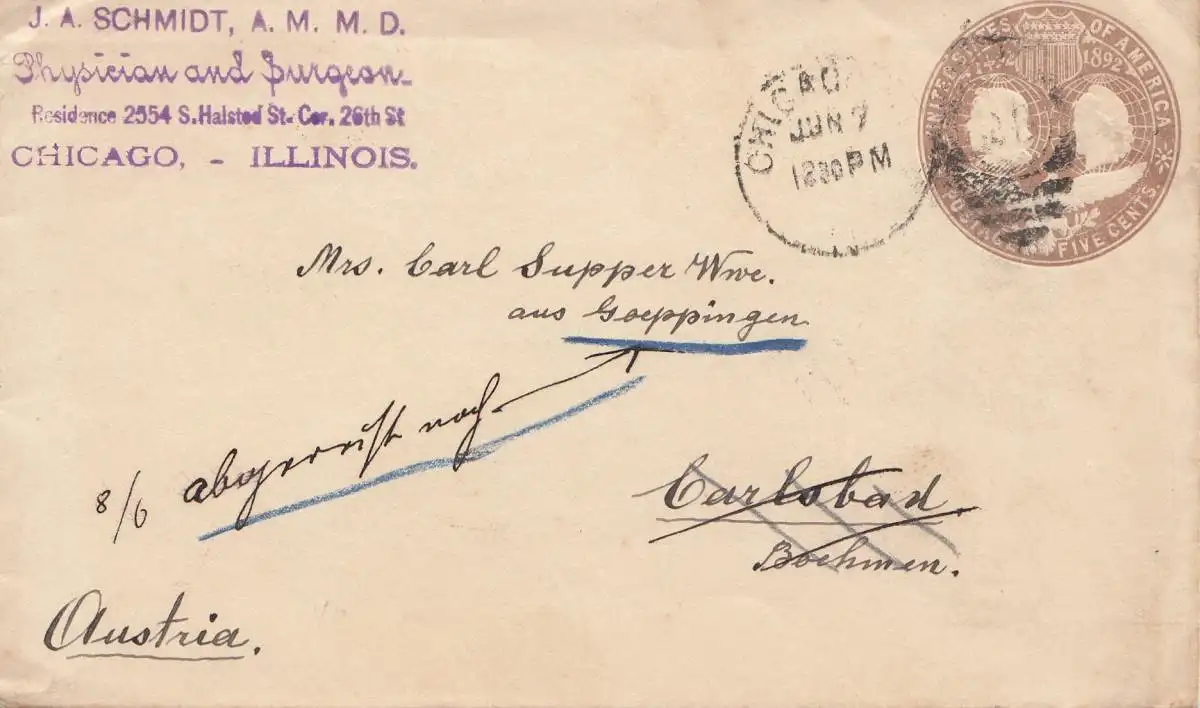 J. A. SCHMIDT, A. M. M. D.
Physician and Surgeon
Residence 2554 S. Halsted St. Cor. 26th St
CHICAGO, - ILLINOIS.
CHICAGO
JUN 7
1230 PM
UNITED STATES OF AMERICA
1492 1892
POSTAGE FIVE CENTS.
Mrs. Carl Supper Wwe.
aus Goeppingen
8/6 abgereist nach
Carlsbad.
Boehmen.
Austria.